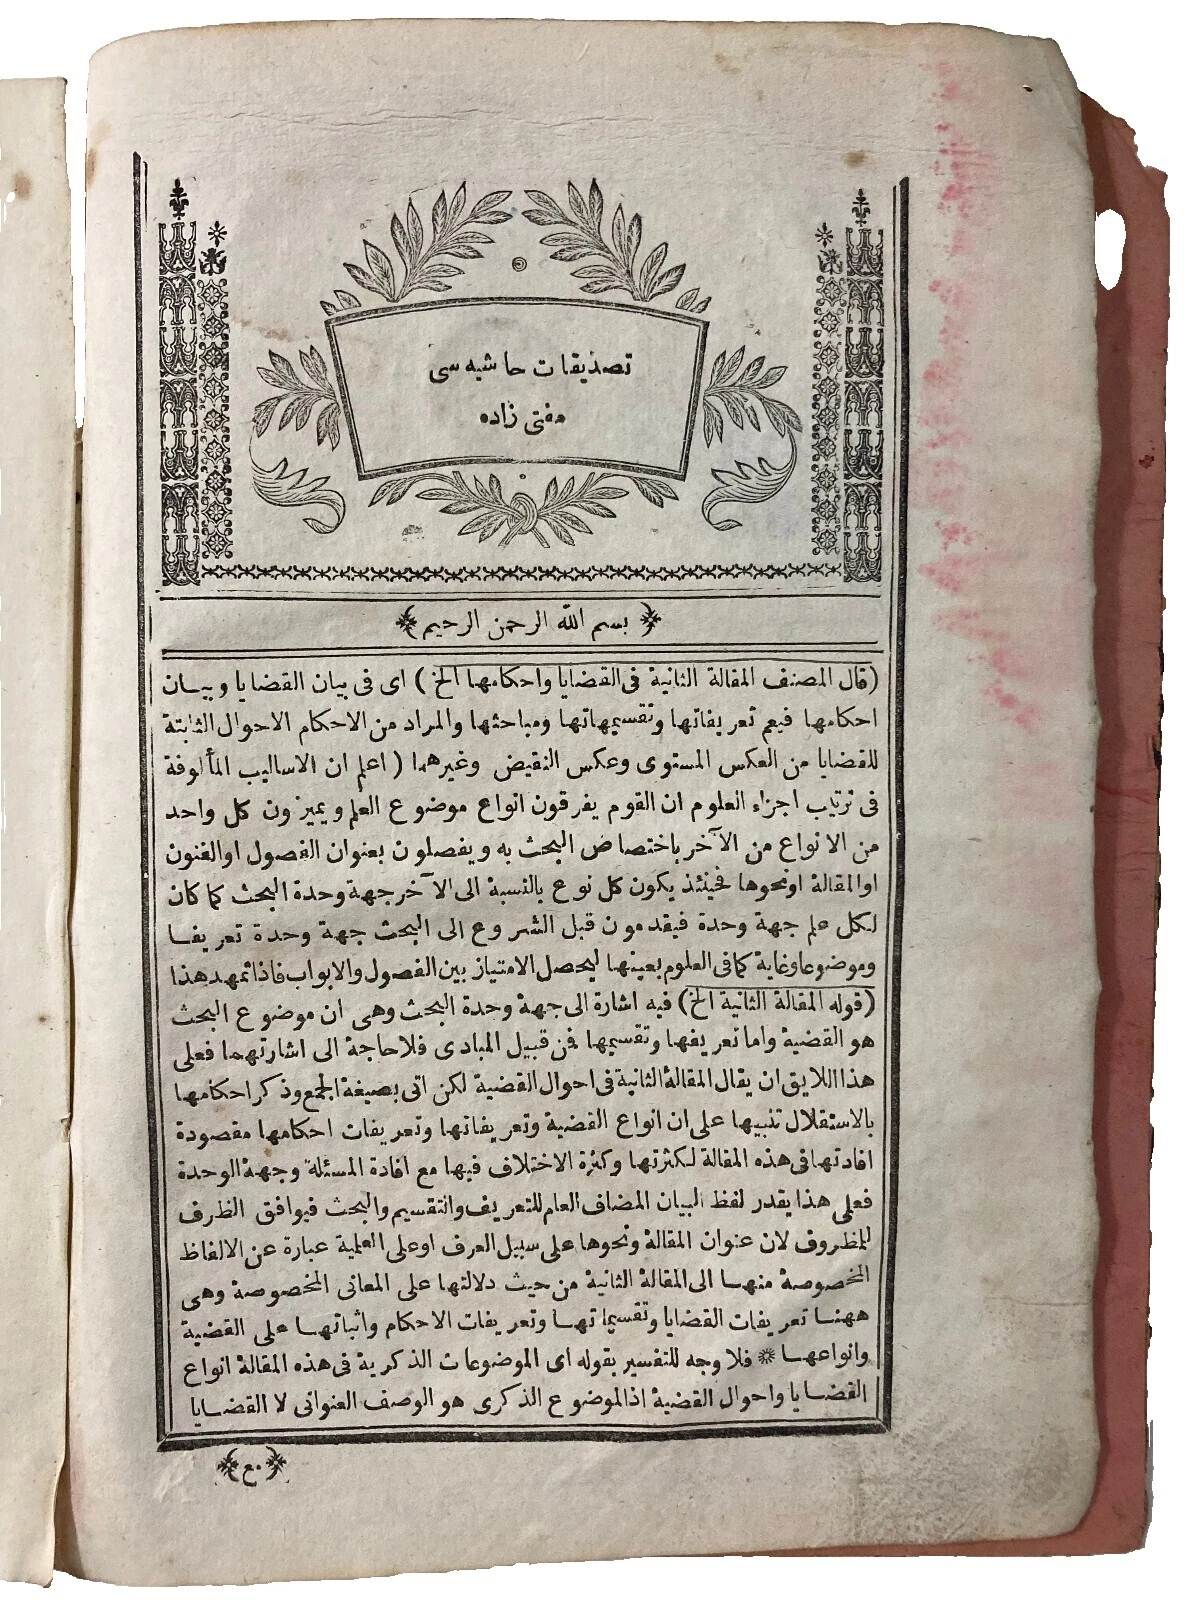 تصديقات حاشيه سى
مفتى زاده
بسم الله الرحمن الرحيم
(قال المصنف المقالة الثانية فى القضايا واحكامها الخ) اى فى بيان القضايا وبيان
احكامها فيعم تعريفاتها وتقسيماتها ومباحثها والمراد من الاحكام الاحوال الثابتة
للقضايا من العكس المستوى وعكس النقيض وغيرهما (اعلم ان الاساليب المألوفة
فى ترتيب اجزاء العلوم ان القوم يفرقون انواع موضوع العلم ويميزون كل واحد
من الانواع من الآخر باختصاص البحث به ويفصلون بعنوان الفصول اوالفنون
اوالمقالة اونحوها فحينئذ يكون كل نوع بالنسبة الى الآخر جهة وحدة البحث كما كان
لكل علم جهة وحدة فيقدمون قبل الشروع الى البحث جهة وحدة تعريفا
وموضوعا وغاية كما فى العلوم بعينها ليحصل الامتياز بين الفصول والابواب فاذا تمهد هذا
(قوله المقالة الثانية الخ) فيه اشارة الى جهة وحدة البحث وهى ان موضوع البحث
هو القضية واما تعريفها وتقسيمها فمن قبيل المبادى فلا حاجة الى اشارتهما فعلى
هذا اللايق ان يقال المقالة الثانية فى احوال القضية لكن اتى بصيغة الجمع وذكر احكامها
بالاستقلال تنبيها على ان انواع القضية وتعريفاتها وتعريفات احكامها مقصودة
افادتها فى هذه المقالة لكثرتها وكثرة الاختلاف فيها مع افادة المسئلة وجهة الوحدة
فعلى هذا يقدر لفظ البيان المضاف العام للتعريف والتقسيم والبحث فيوافق الظرف
للمظروف لان عنوان المقالة ونحوها على سبيل العرف اوعلى العلمية عبارة عن الالفاظ
المخصوصة منها الى المقالة الثانية من حيث دلالتها على المعانى المخصوصة وهى
ههنا تعريفات القضايا وتقسيماتها وتعريفات الاحكام واثباتها على القضية
وانواعها * فلا وجه للتفسير بقوله اى الموضوعات الذكرية فى هذه المقالة انواع
القضايا واحوال القضية اذ الموضوع الذكرى هو الوصف العنوانى لا القضايا